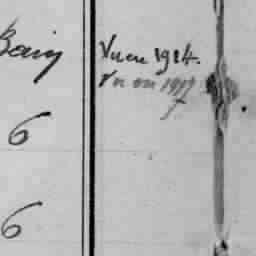 Bainj Vu en 1914.
Vu en 1917
6
6